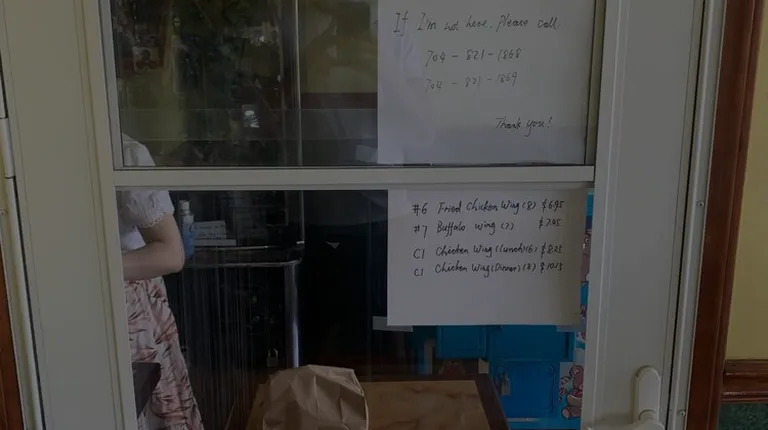 If I'm not here, Please call
704-821-1868
704-821-1869
Thank you!
#6 Fried Chicken Wing (8) $6.95
#7 Buffalo Wing (7) $7.45
C1 Chicken Wing (Lunch) (6) $8.25
C1 Chicken Wing (Dinner) (8)